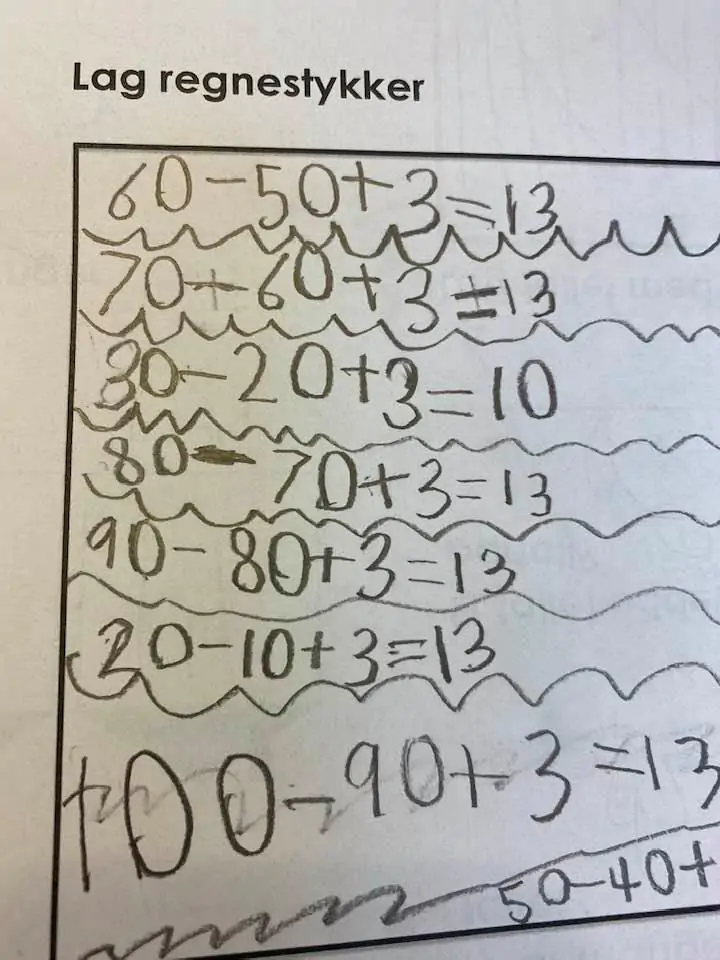 Lag regnestykker
60-50+3=13
70+60+3=13
30-20+3=10
80-70+3=13
90-80+3=13
20-10+3=13
100-90+3=13
50-40+